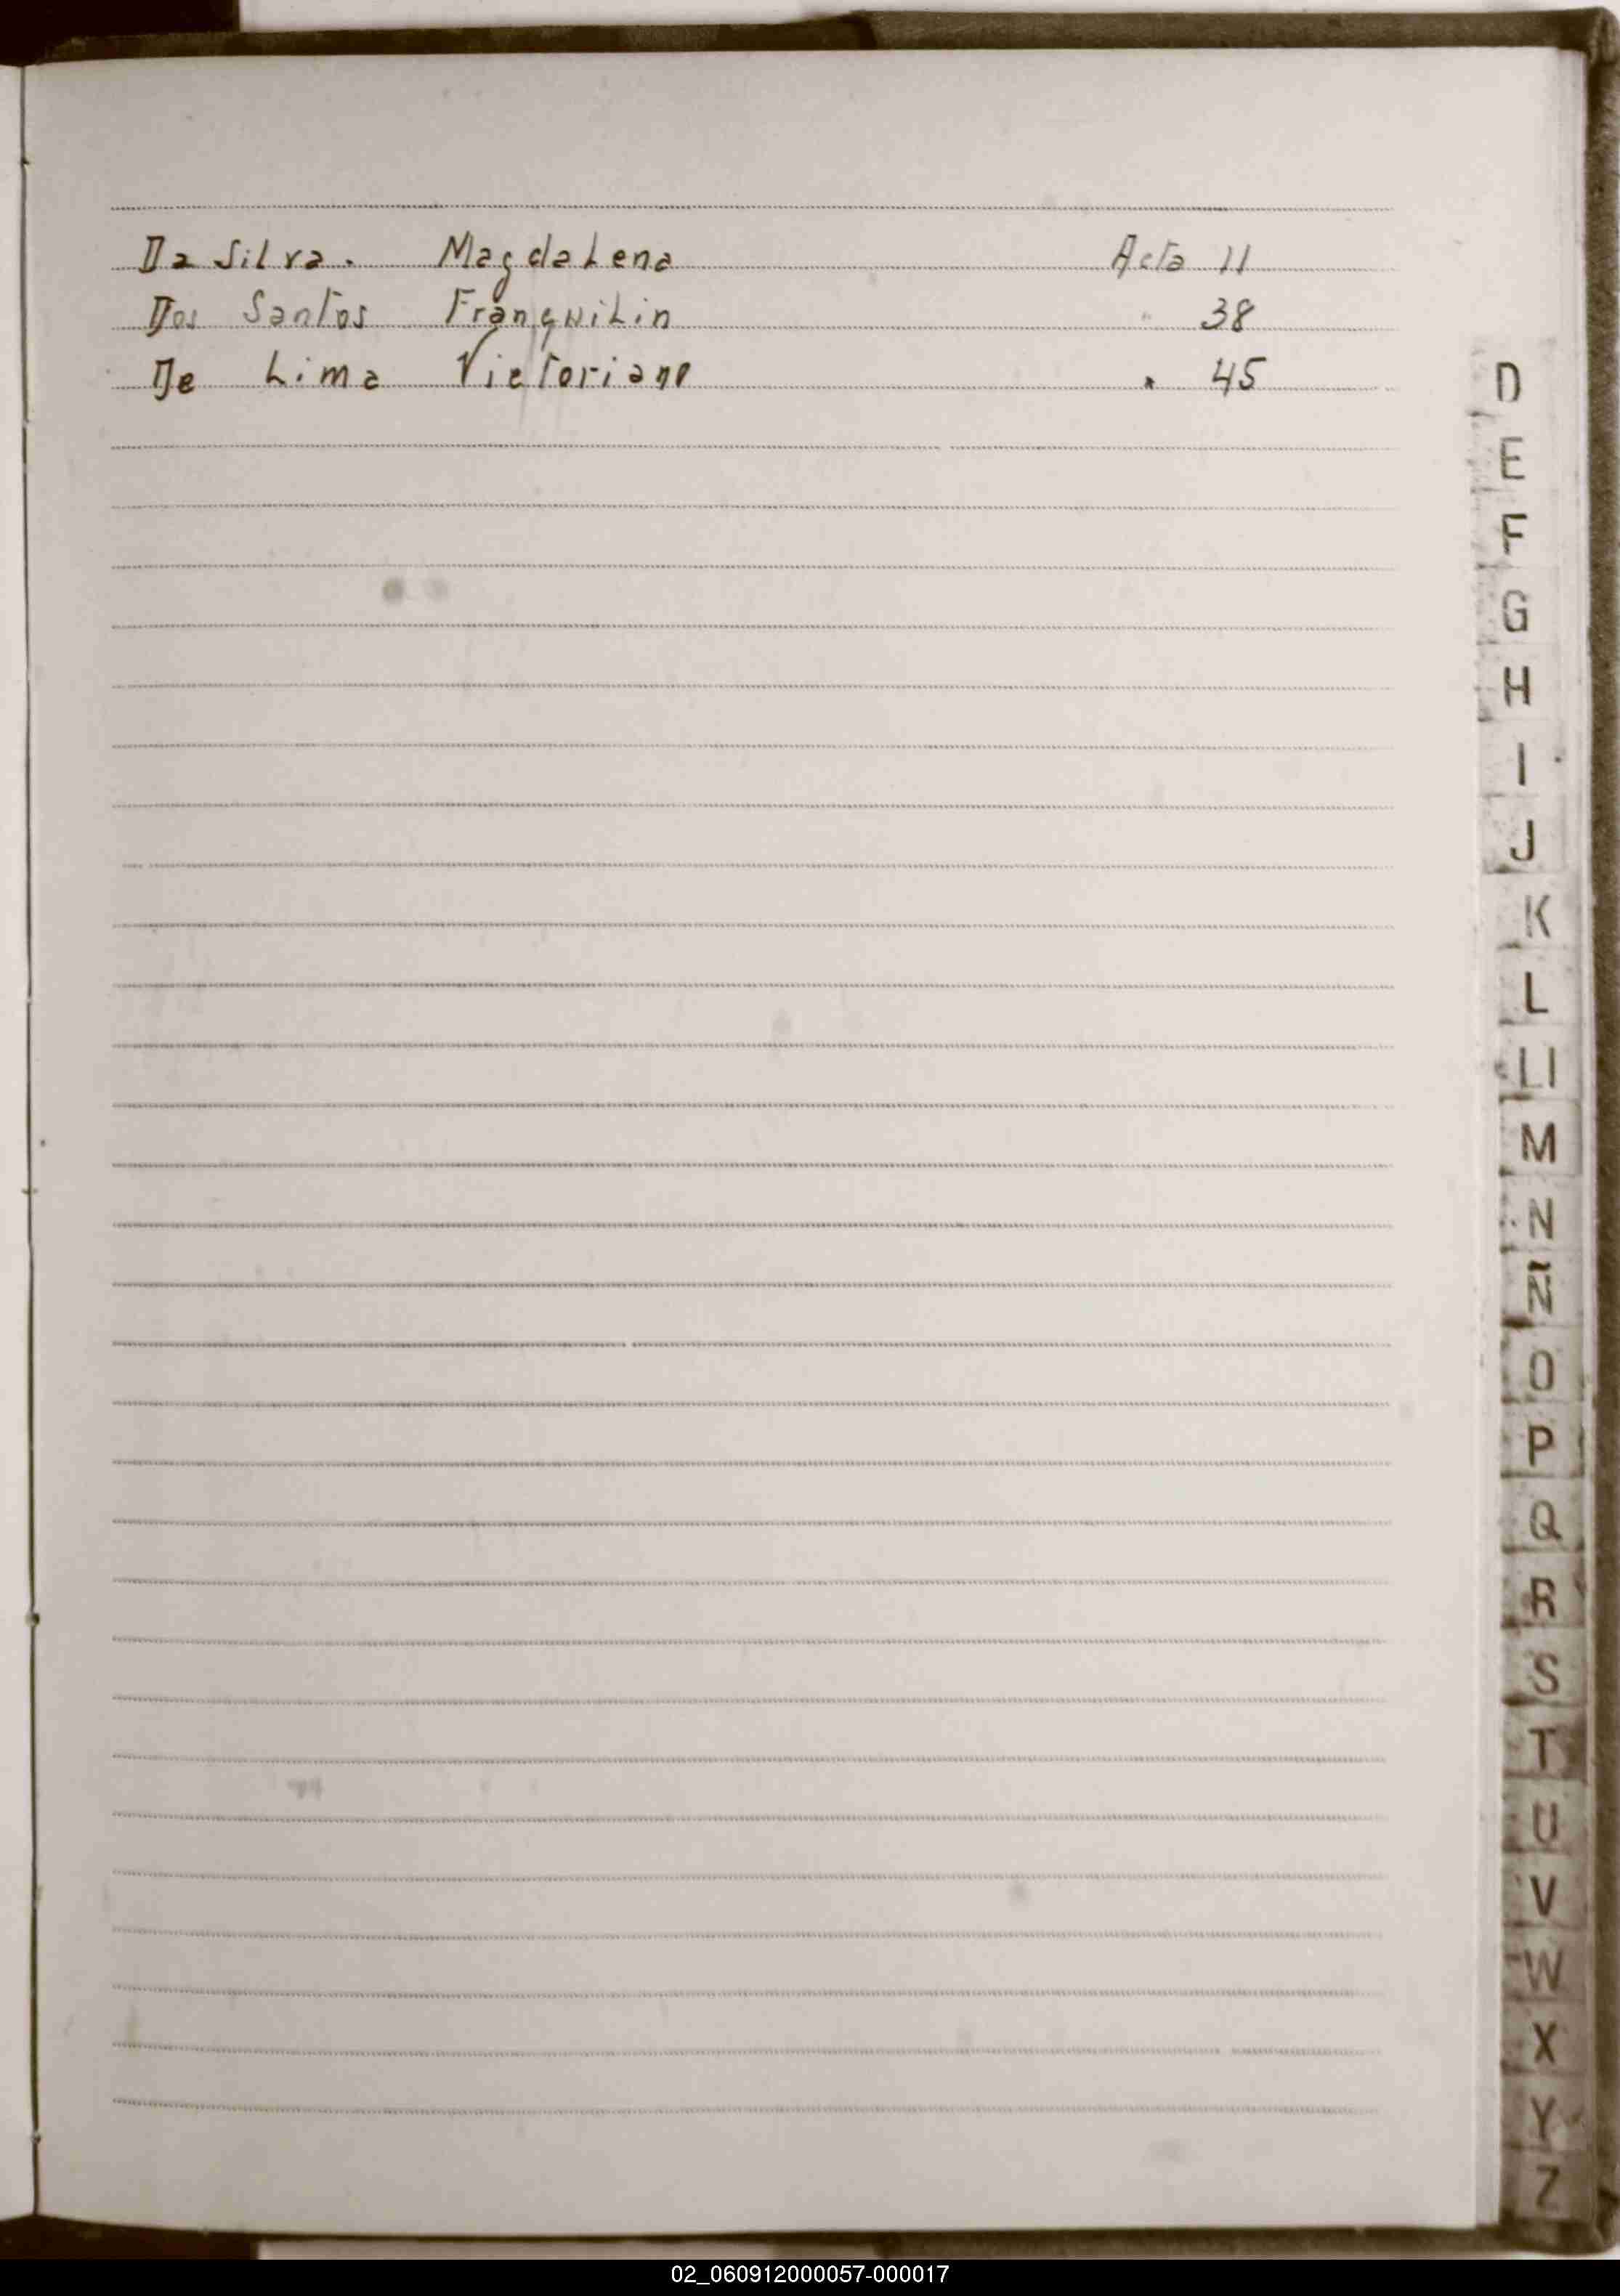 Da Silva. Magdalena Acta 11
Dos Santos Franquilin " 38
De Lima Victoriano " 45
D
E
F
G
H
I
J
K
L
Ll
M
N
Ñ
O
P
Q
R
S
T
U
V
W
X
Y
Z
02_060912000057-000017